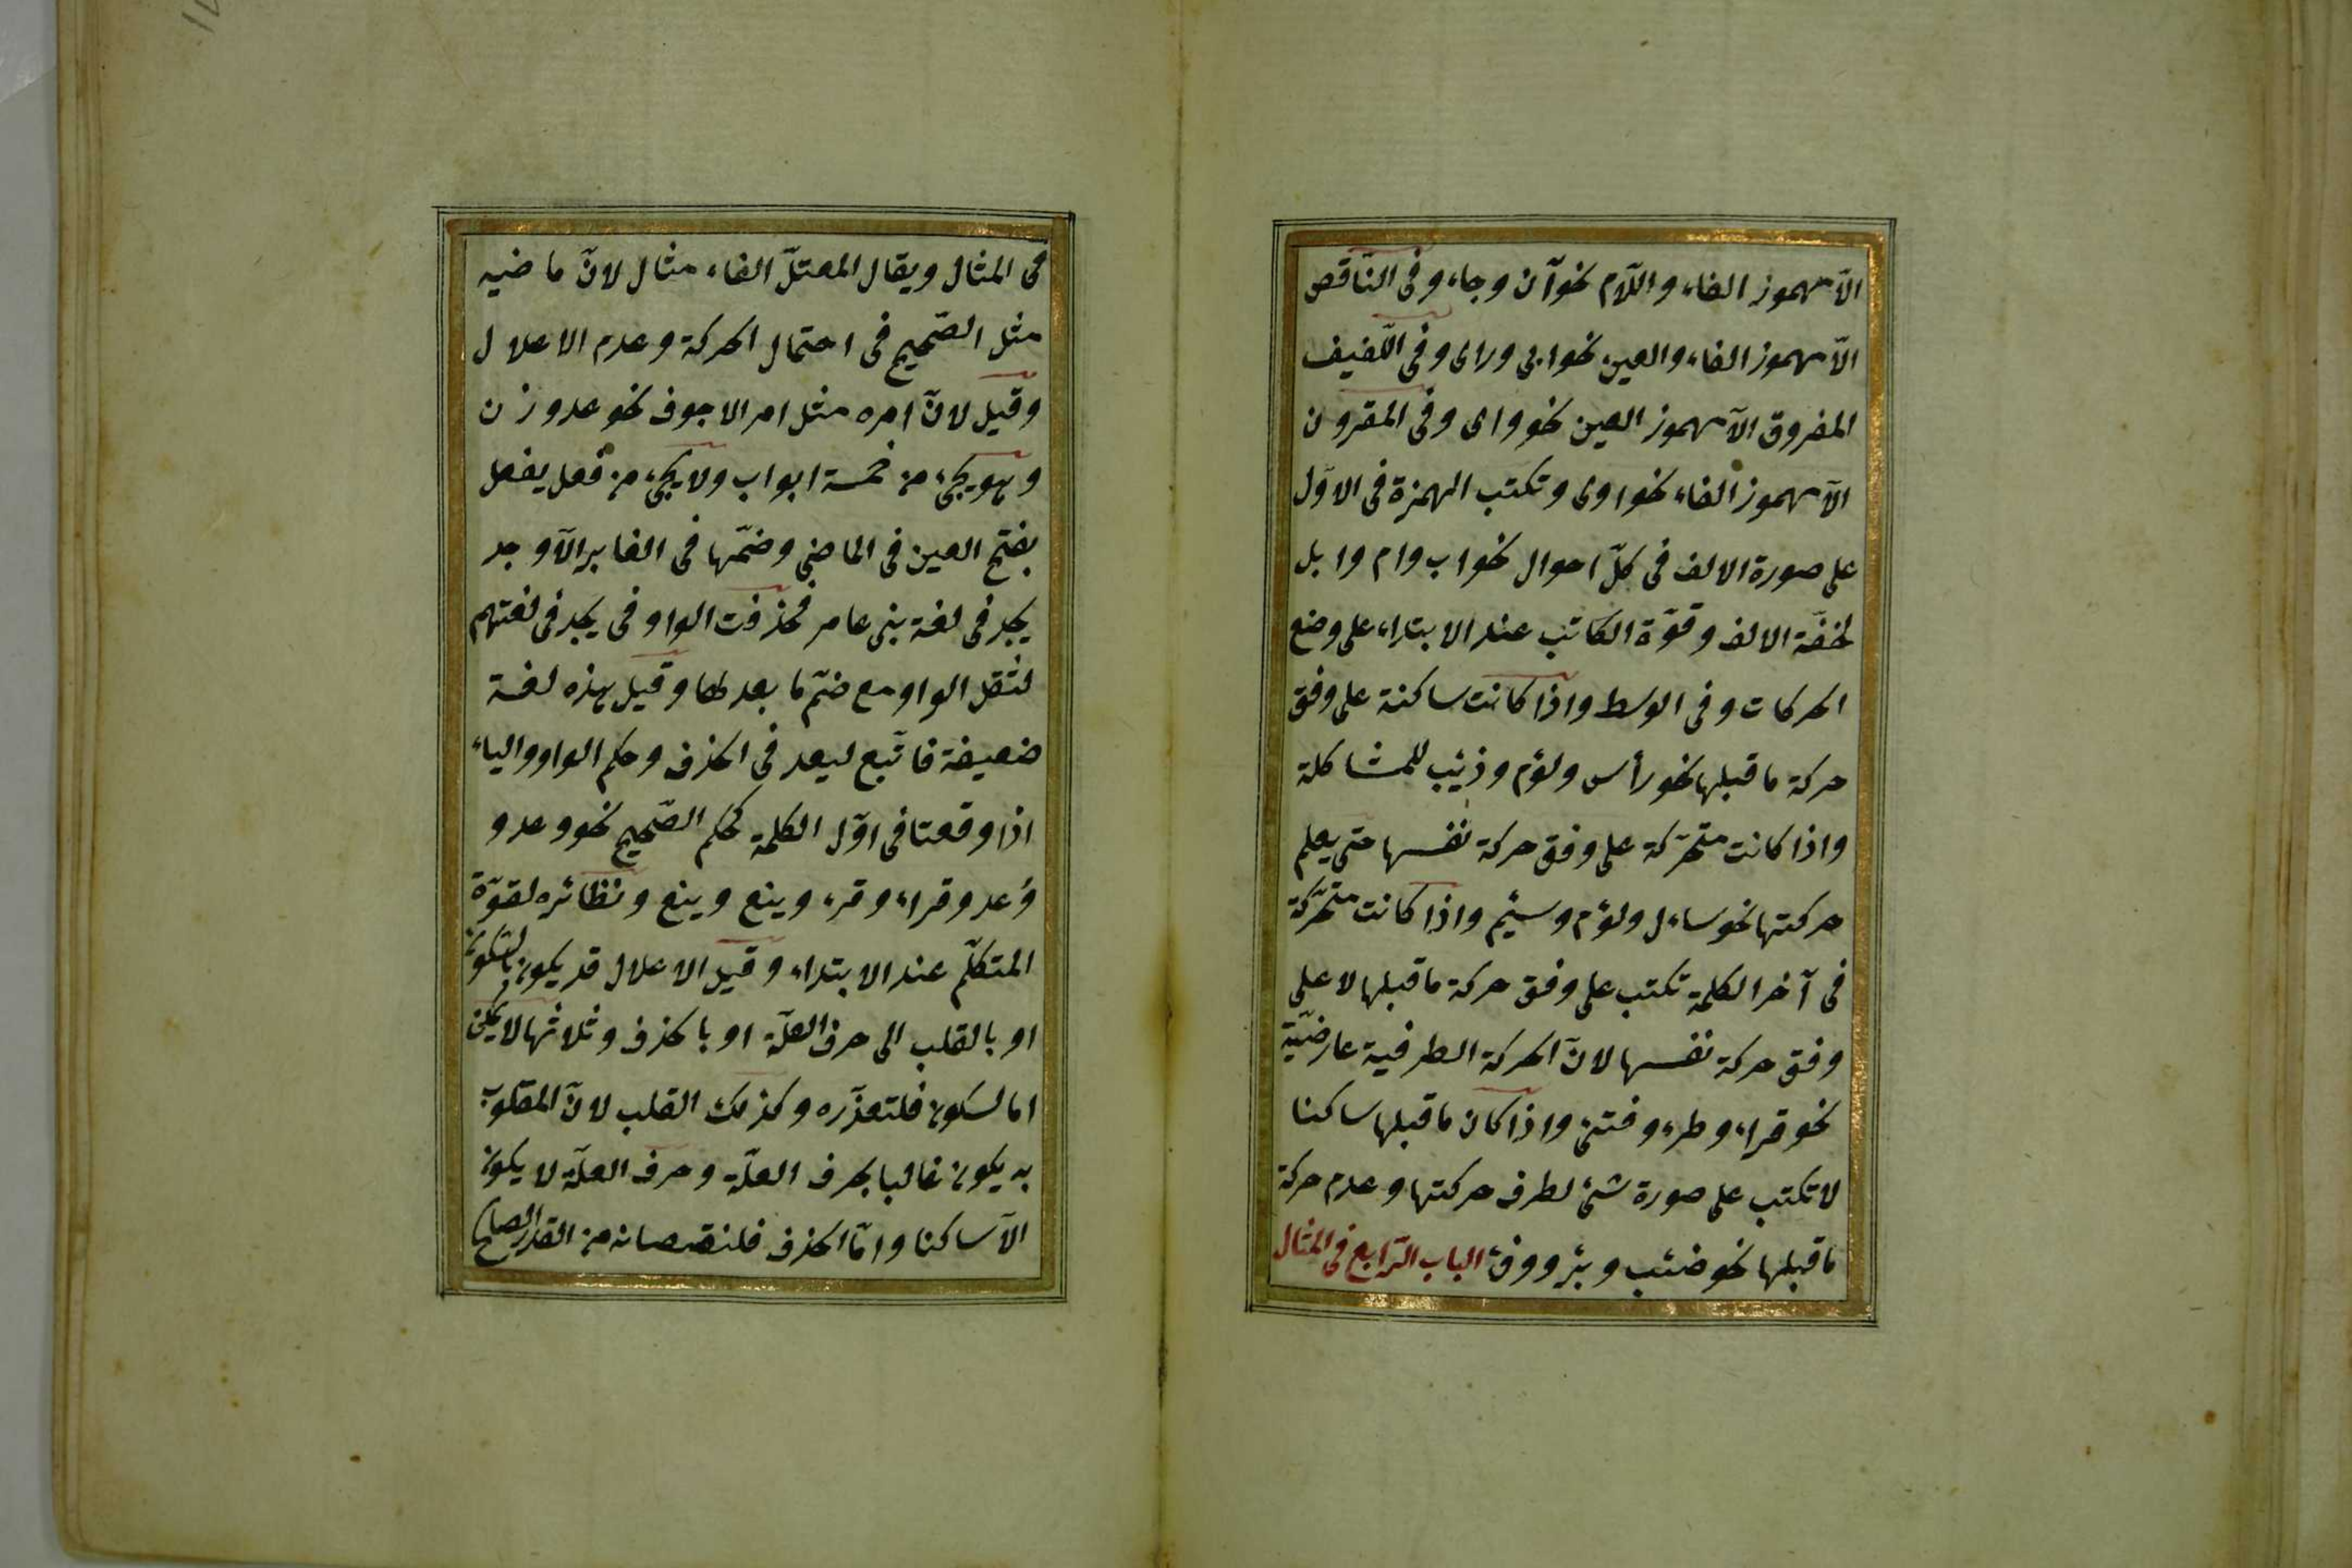 الّا مهموز الفاء واللّام نحو آن وجاء وفى النّاقص
الّا مهموز الفاء والعين نحو ابى وراى وفى اللّفيف
المفروق الّا مهموز العين نحو واى وفى المقرون
الّا مهموز الفاء نحو اوى وتكتب الهمزة فى الاوّل
على صورة الالف فى كلّ احوال نحو اب وام وابل
لخفّة الالف وقوّة الكاتب عند الابتداء على وضع
الحركات وفى الوسط واذا كانت ساكنة على وفق
حركة ما قبلها نحو رأس ولؤم وذئب للمشاكلة
واذا كانت متحرّكة على وفق حركة نفسها حتى يعلم
حركتها نحو ساءل ولؤم وسئم واذا كانت متحرّكة
فى آخر الكلمة تكتب على وفق حركة ما قبلها لا على
وفق حركة نفسها لانّ الحركة الطرفية عارضيّة
نحو قراء وطرء وفتئ واذا كان ما قبلها ساكنا
لا تكتب على صورة شئ لطرف حركتها وعدم حركة
ما قبلها نحو ضئب وبئر ووفئ الباب الرّابع فى المثال
فى المثال ويقال المعتلّ الفاء مثال لانّ ماضيه
مثل الصّحيح فى احتمال الحركة وعدم الاعلال
وقيل لانّ امره مثل امر الاجوف نحو عد وزن
وهو يجئ من خمسة ابواب ولا يجئ من فعل يفعل
بفتح العين فى الماضى وضمّها فى الغابر الّا وجد
يجد فى لغة بنى عامر فحذفت الواو فى يجد فى لغتهم
لثقل الواو مع ضمّ ما بعدها وقيل هذه لغة
ضعيفة فاتّبع ليعد فى الحذف وحكم الواو والياء
اذا وقعتا فى اوّل الكلمة كحكم الصّحيح نحو وعد و
وُعد وقراء وقرء وينع وينع ونظائره لقوّة
المتكلّم عند الابتداء وقيل الاعلال قد يكون بالسّكون
او بالقلب الى حرف العلّة او بالحذف وثلاثها لا يمكن
اما لسكون فلتعذّره وكذلك القلب لانّ المقلوب
به يكون غالبا بحرف العلّة وحرف العلّة لا يكون
الّا ساكنا وامّا الحذف فلنقصانه من القدر الصالح